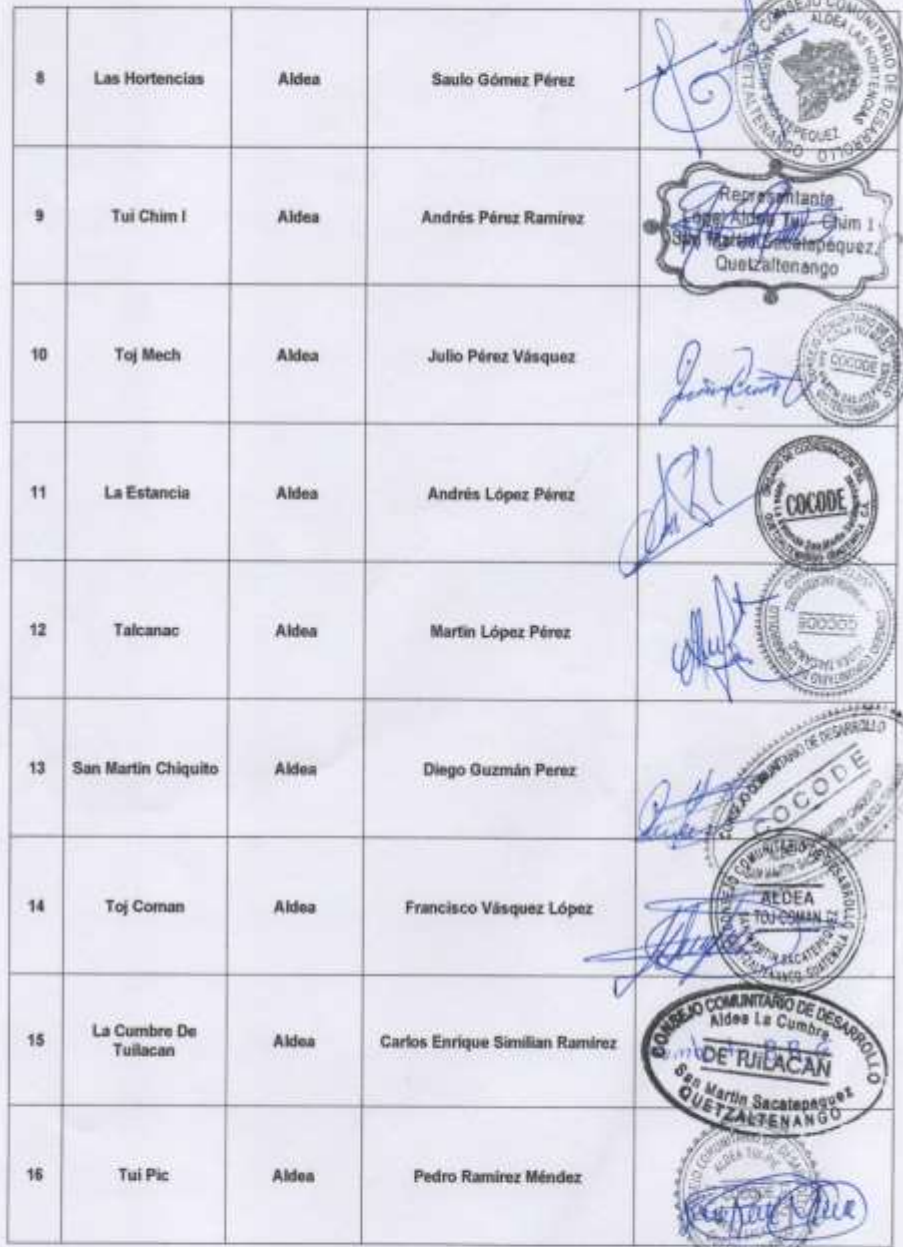 CONSEJO COMUNITARIO DE DESARROLLO
ALDEA LAS HORTENCIAS
QUETZALTENANGO
8 Las Hortencias Aldea Saulo Gómez Pérez
9 Tui Chim I Aldea Andrés Pérez Ramírez
Representante
Legal Aldea Tui Chim 1
San Martín Sacatepéquez,
Quetzaltenango
10 Toj Mech Aldea Julio Pérez Vásquez
COCODE
11 La Estancia Aldea Andrés López Pérez
COCODE
12 Talcanac Aldea Martin López Pérez
COCODE
CONSEJO COMUNITARIO DE DESARROLLO
ALDEA TALCANAC
13 San Martin Chiquito Aldea Diego Guzmán Perez
CONSEJO COMUNITARIO DE DESARROLLO
COCODE
14 Toj Coman Aldea Francisco Vásquez López
CONSEJO COMUNITARIO DE DESARROLLO
ALDEA
TOJ COMAN
SAN MARTIN SACATEPEQUEZ
QUETZALTENANGO, GUATEMALA
15 La Cumbre De
Tuilacan Aldea Carlos Enrique Similian Ramírez
CONSEJO COMUNITARIO DE DESARROLLO
Aldea La Cumbre
DE TUILACAN
San Martin Sacatepequez
QUETZALTENANGO
16 Tui Pic Aldea Pedro Ramírez Méndez